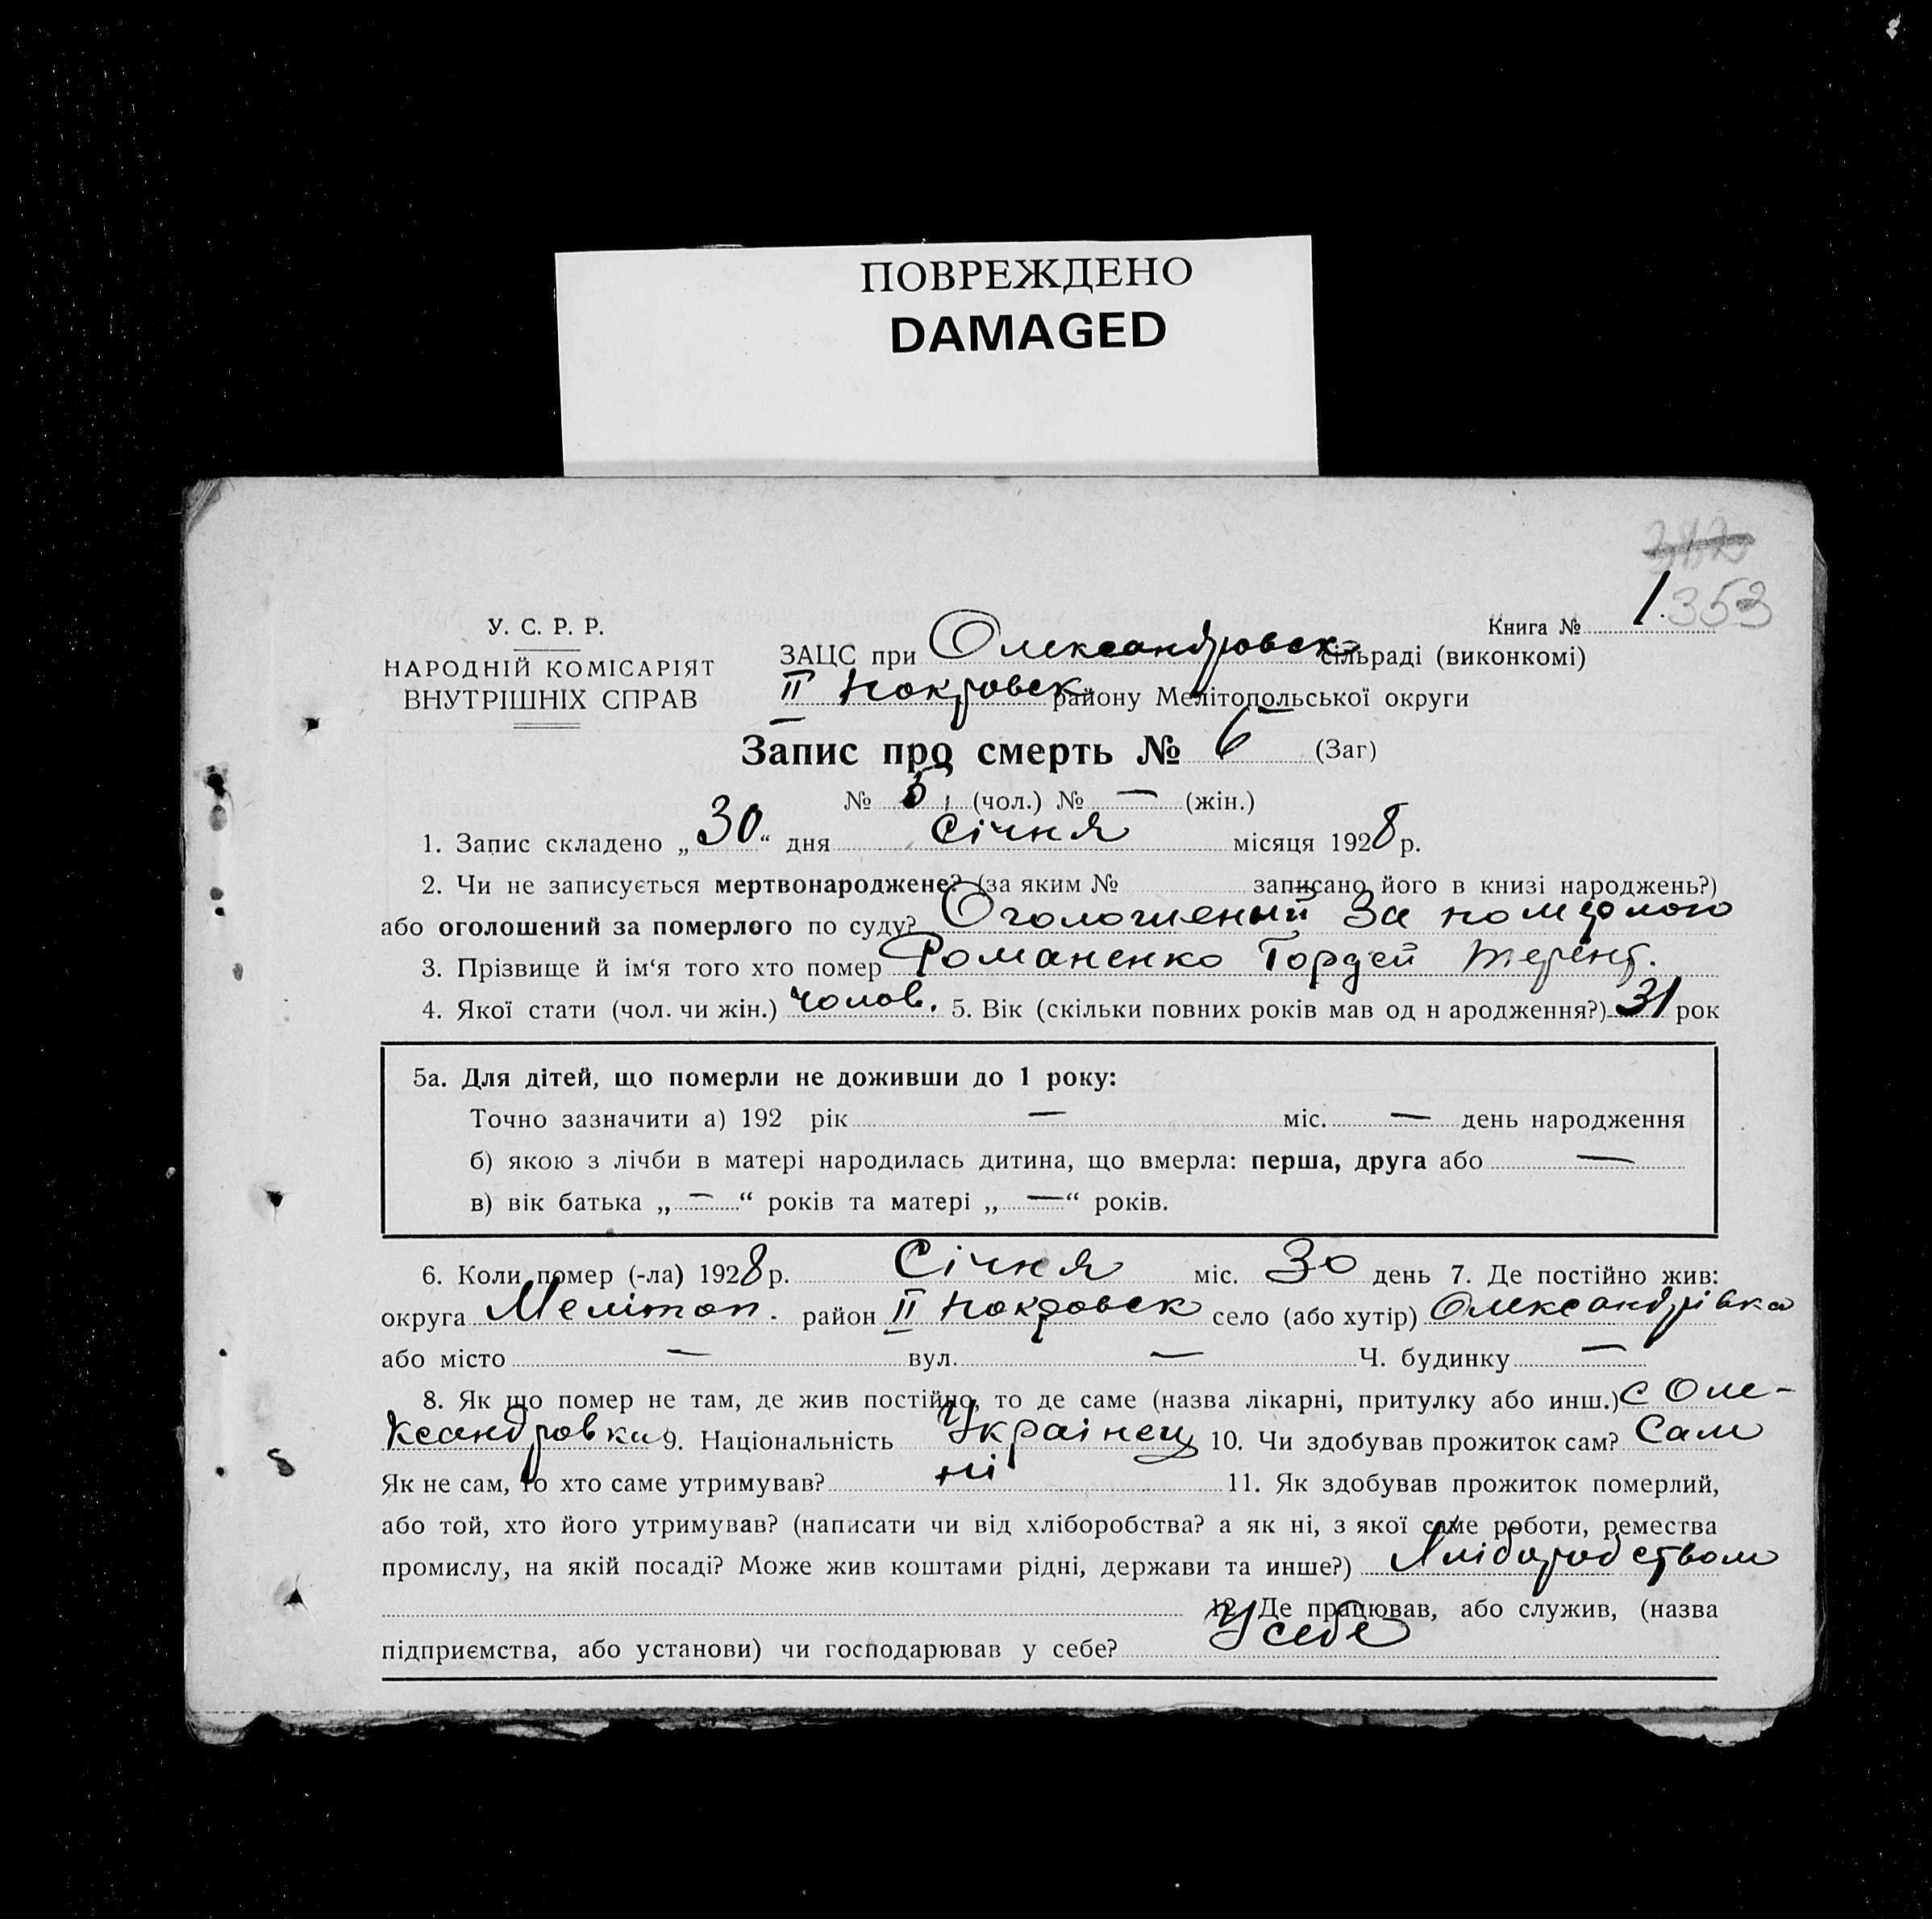 ПОВРЕЖДЕНО
DAMAGED
353
Книга № 1.
У. С. Р. Р.
НАРОДНІЙ КОМІСАРІЯТ
ВНУТРІШНІХ СПРАВ
ЗАЦС при Олександровск сільраді (виконкомі)
ІІ Покровск району Мелітопольської округи
Запис про смерть № 6 (Заг)
№ 5, (чол.) № — (жін.)
1. Запис складено „30“ дня Січня місяця 1928 р.
2. Чи не записується мертвонароджене? (за яким № записано його в книзі народжень?)
або оголошений за померлого по суду? Оголошеный За помэрлого
3. Прізвище й ім‘я того хто помер Романенко Гордей Терент.
4. Якої стати (чол. чи жін.) Чолов. 5. Вік (скільки повних років мав од н ародження?) 31 рок
5а. Для дітей, що померли не доживши до 1 року:
Точно зазначити а) 192 рік — міс. — день народження
б) якою з лічби в матері народилась дитина, що вмерла: перша, друга або —
в) вік батька „—“ років та матері „—“ років.
6. Коли помер (-ла) 1928 р. Січня міс. 30 день 7. Де постійно жив:
округа Мелітоп. район ІІ Покровск село (або хутір) Олександрівка
або місто — вул. — Ч. будинку —
8. Як що помер не там, де жив постійно, то де саме (назва лікарні, притулку або инш.) С Оле-
ксандровка 9. Національність Українец 10. Чи здобував прожиток сам? Сам
Як не сам, то хто саме утримував? ні 11. Як здобував прожиток померлий,
або той, хто його утримував? (написати чи від хліборобства? а як ні, з якої саме роботи, ремества
промислу, на якій посаді? Може жив коштами рідні, держави та инше?) Хліборобством
12. Де працював, або служив, (назва
підприємства, або установи) чи господарював у себе? У себе